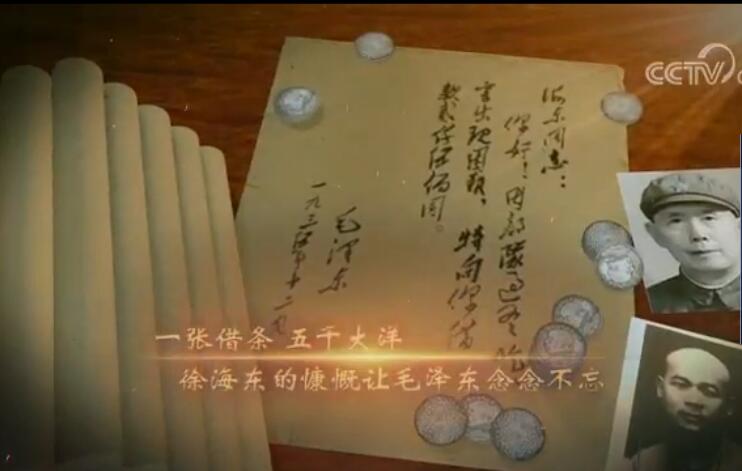 CCTV
海东同志：
你好！因部隊过冬吃
穿出现困难，特向你借
款贰仟伍佰圆。
毛泽东
一九三五年十二月
一张借条 五千大洋
徐海东的慷慨让毛泽东念念不忘